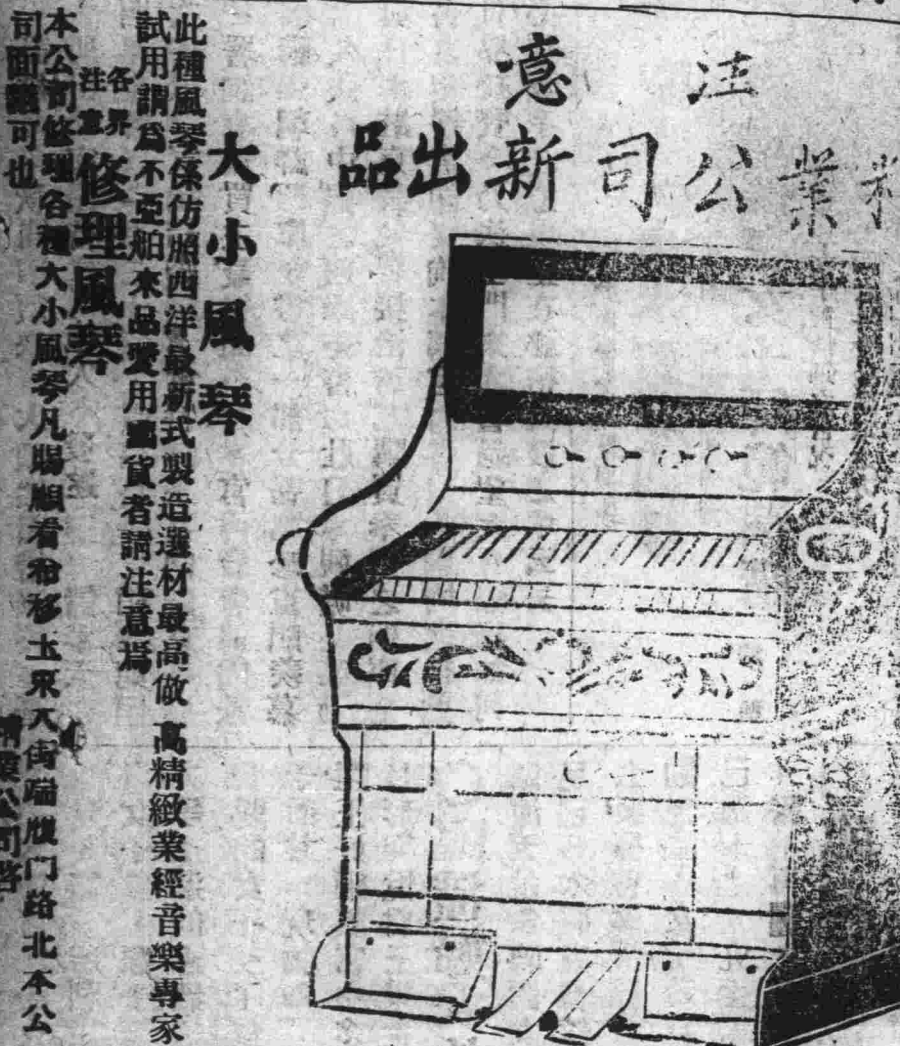 注意
業公司新出品
大小風琴
此種風琴係仿照西洋最新式製造選材最高做 高精緻業經音樂專家
試用謂爲不亞舶來品愛用國貨者請注意焉
各界
注意
修理風琴
本公司修理各種大小風琴凡賜顧者希移玉來大街端履门路北本公
司面議可也
公司啓